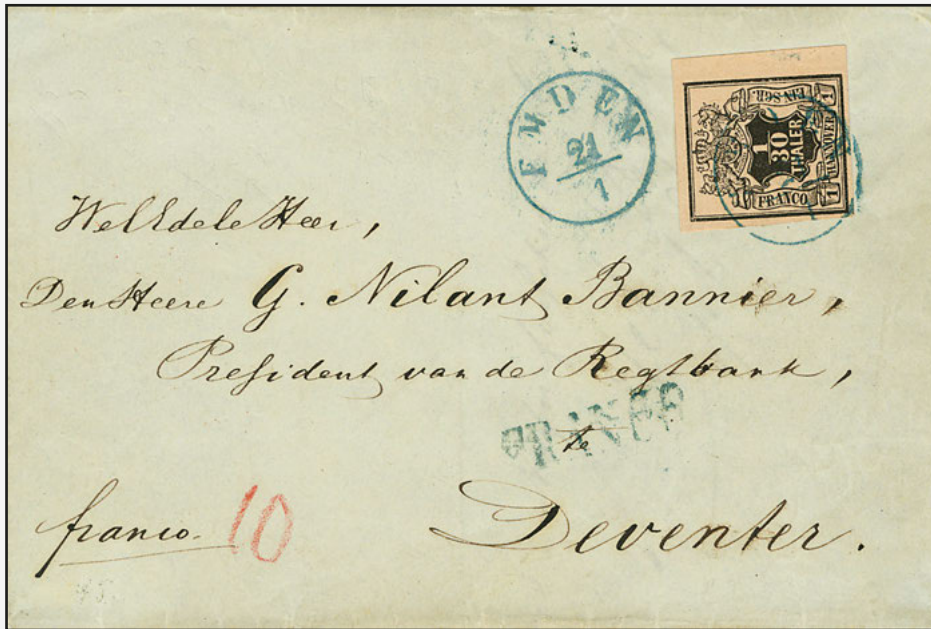 EMDEN
21
1
EIN SGR.
1
30
THALER
HANNOVER
FRANCO
1
1
WelEdele Heer,
Den Heere G. Nilant Bannier,
President van de Regtbank,
FRANCO
te
franco. 10
Deventer.